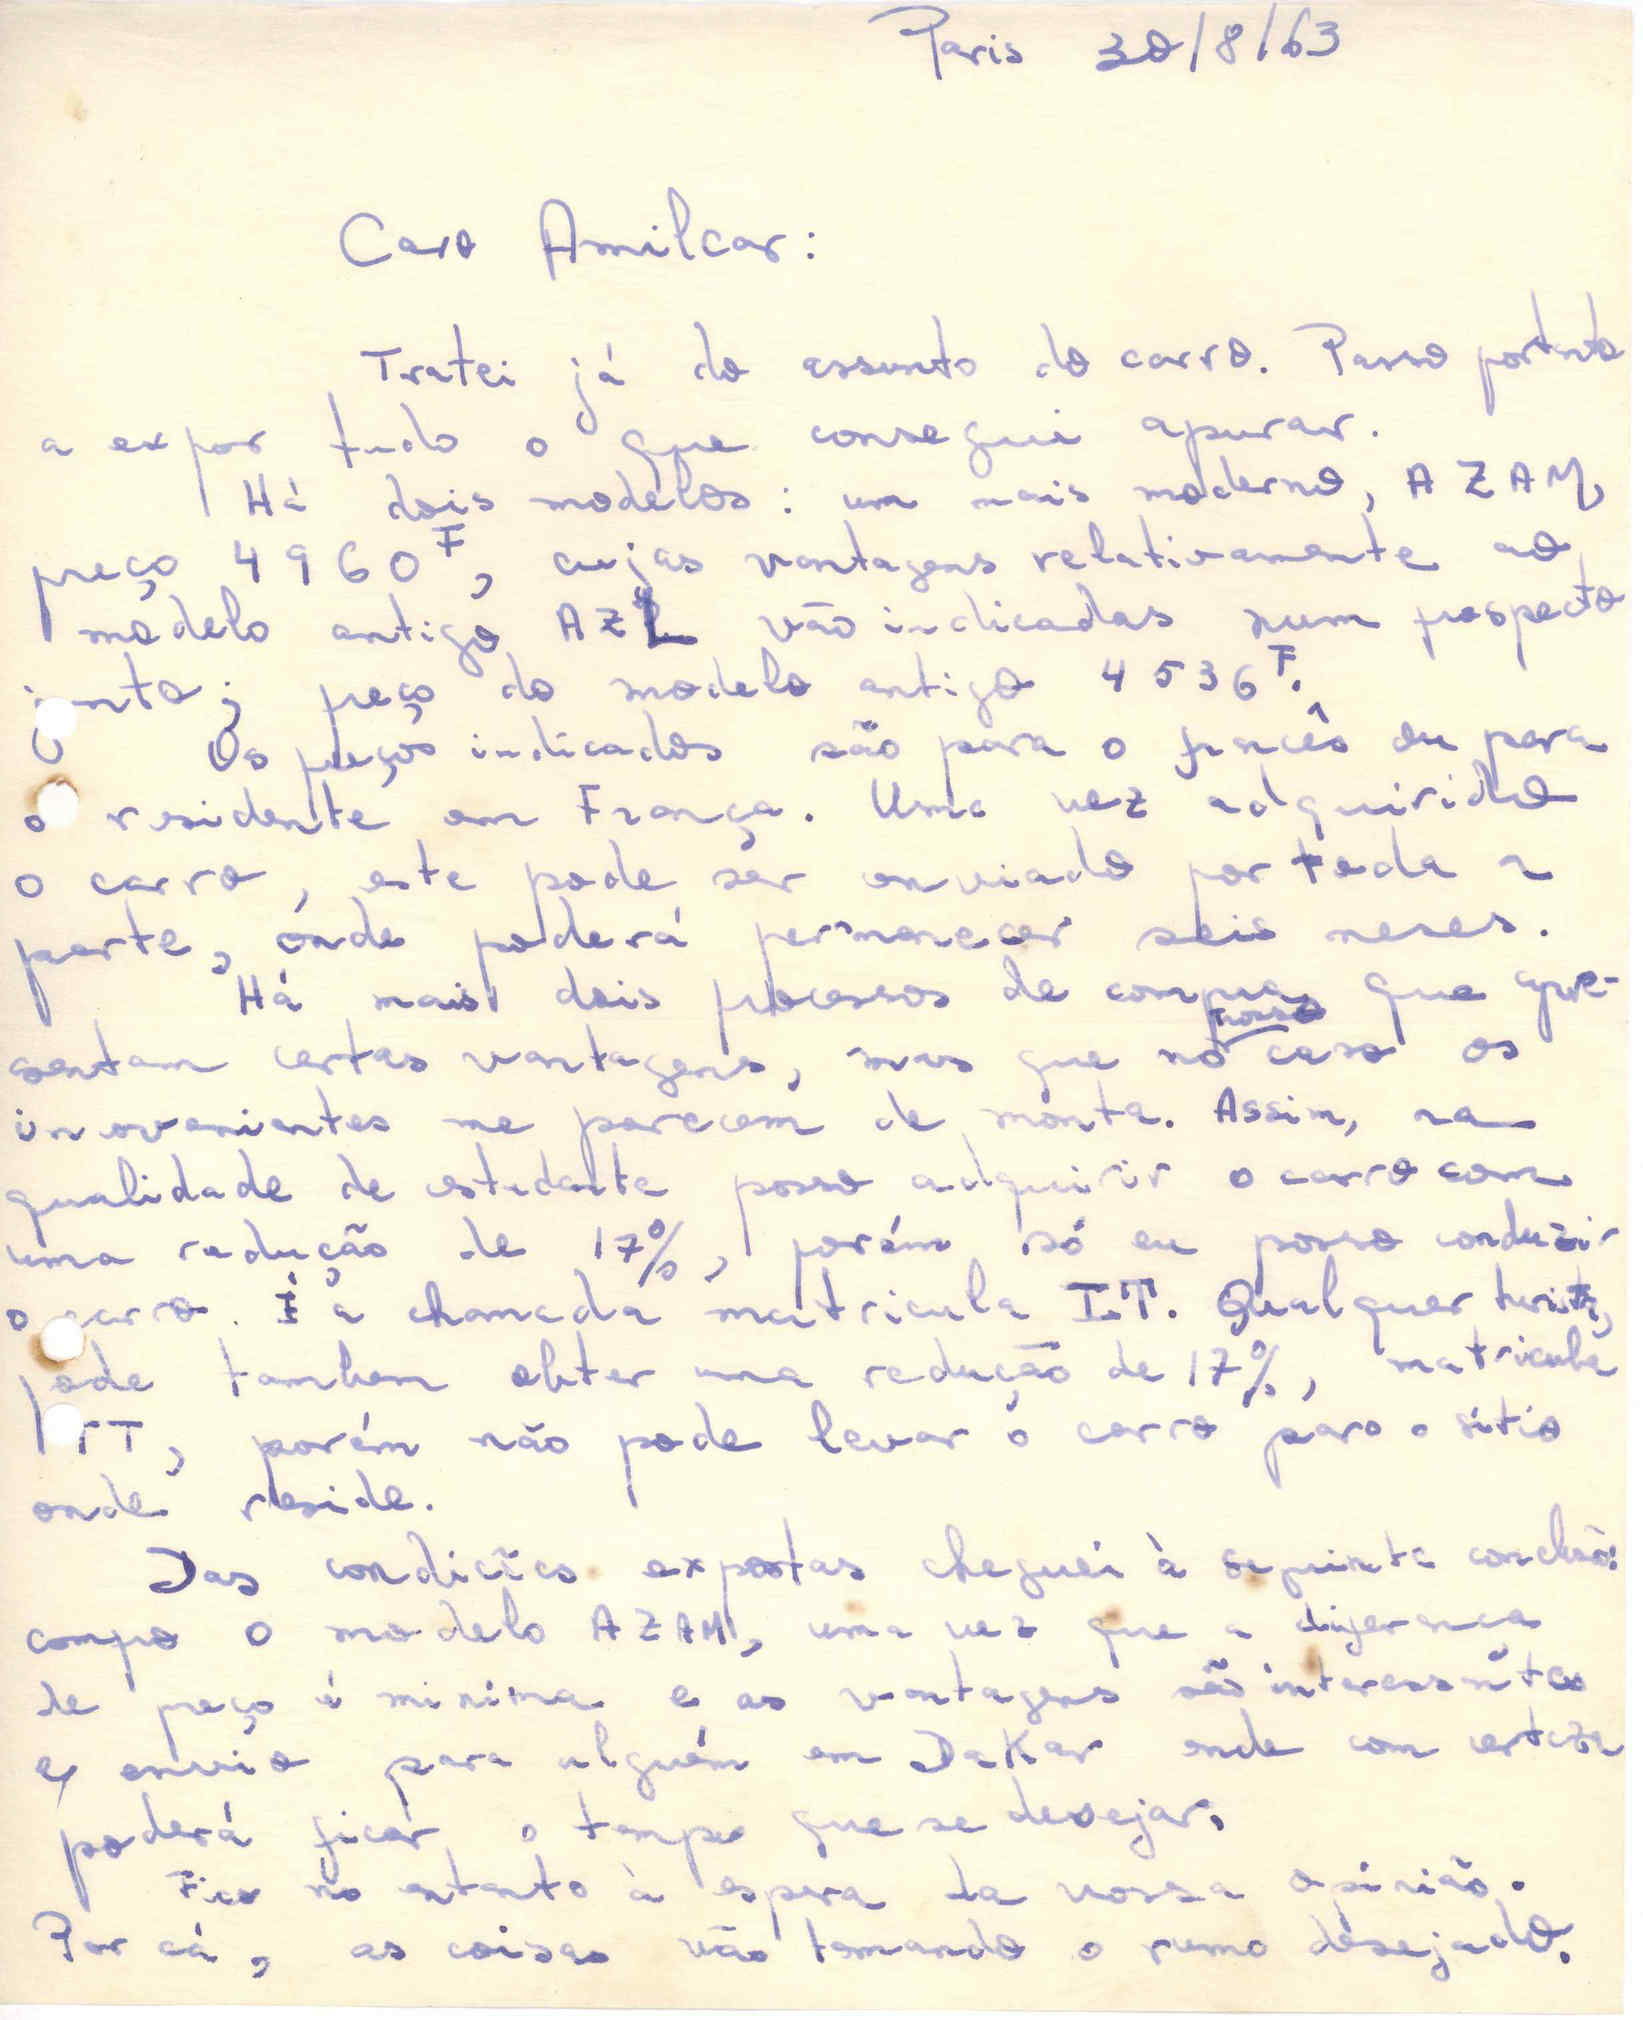 Paris 30/8/63
Caro Amilcar:
Tratei já do assunto do carro. Passo portanto
a expor tudo o que consegui apurar.
Há dois modelos: um mais moderno, AZAM,
preço 4960F, cujas vantagens relativamente ao
modelo antigo AZL vão indicadas num prospecto
junto; preço do modelo antigo 4536F.
Os preços indicados são para o francês ou para
o residente em França. Uma vez adquirido
o carro, este pode ser enviado por toda a
parte, onde poderá permanecer seis meses.
Há mais dois processos de compra, que apre-
sentam certas vantagens, mas que no nosso caso os
inconvenientes me parecem de monta. Assim, na
qualidade de estudante posso adquirir o carro com
uma redução de 17%, porém só eu posso conduzir
o carro. É a chamada matricula IT. Qualquer turista,
pode tambem obter uma redução de 17%, matricula
TT, porém não pode levar o carro para o sitio
onde reside.
Das condições expostas cheguei à seguinte conclusão:
compro o modelo AZAM, uma vez que a diferença
de preço é minima e as vantagens são interessantes
e, envio para alguém em Dakar onde com certeza
poderá ficar o tempo que se desejar.
Fico no entanto à espera da vossa opinião.
Por cá, as coisas vão tomando o rumo desejado.